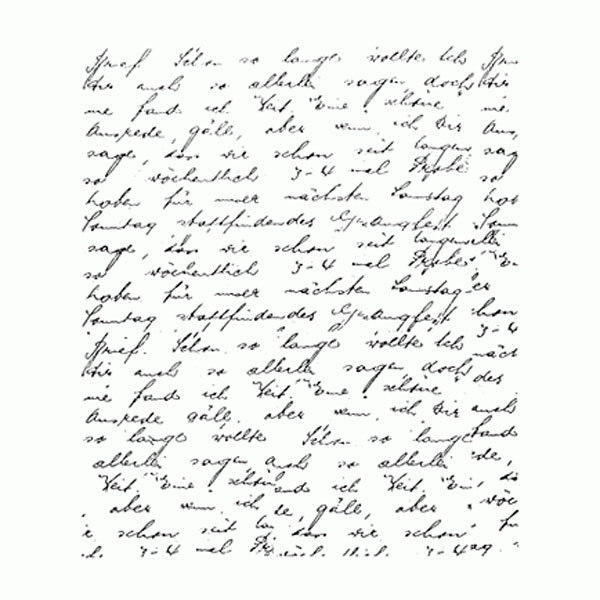 Brief. Schon so lange wollte Ich
dir auch so allerlei sagen doch dir
nie fand ich Zeit. "Eine schöne" nie
Ausrede, gäll, aber wenn ich Dir Aus,
sage, dass wir schon seit langem sag
so wöchentlich 3-4 mal Probe so
haben für unser nächsten Samstag hab
Sonntag stattfindendes Gesangfest Sonn
sage, dass wir schon seit
so wöchentlich 3-4 mal Probe,
haben für unser nächsten Samstag
Sonntag stattfindendes Gesangfest
Brief. Schon so lange wollte Ich
dir auch so allerlei sagen doch des
nie fand ich Zeit. "Eine schöne"
Ausrede gäll, aber wenn ich Dir auch
so lange wollte Schon so lange fand
allerlei sagen auch so allerlei de,
Zeit. "Eine schöne ich Zeit. "Eine
, aber wenn ich de, gäll, aber wöc
schon seit dass wir schon fü
3-4 mal 3-4